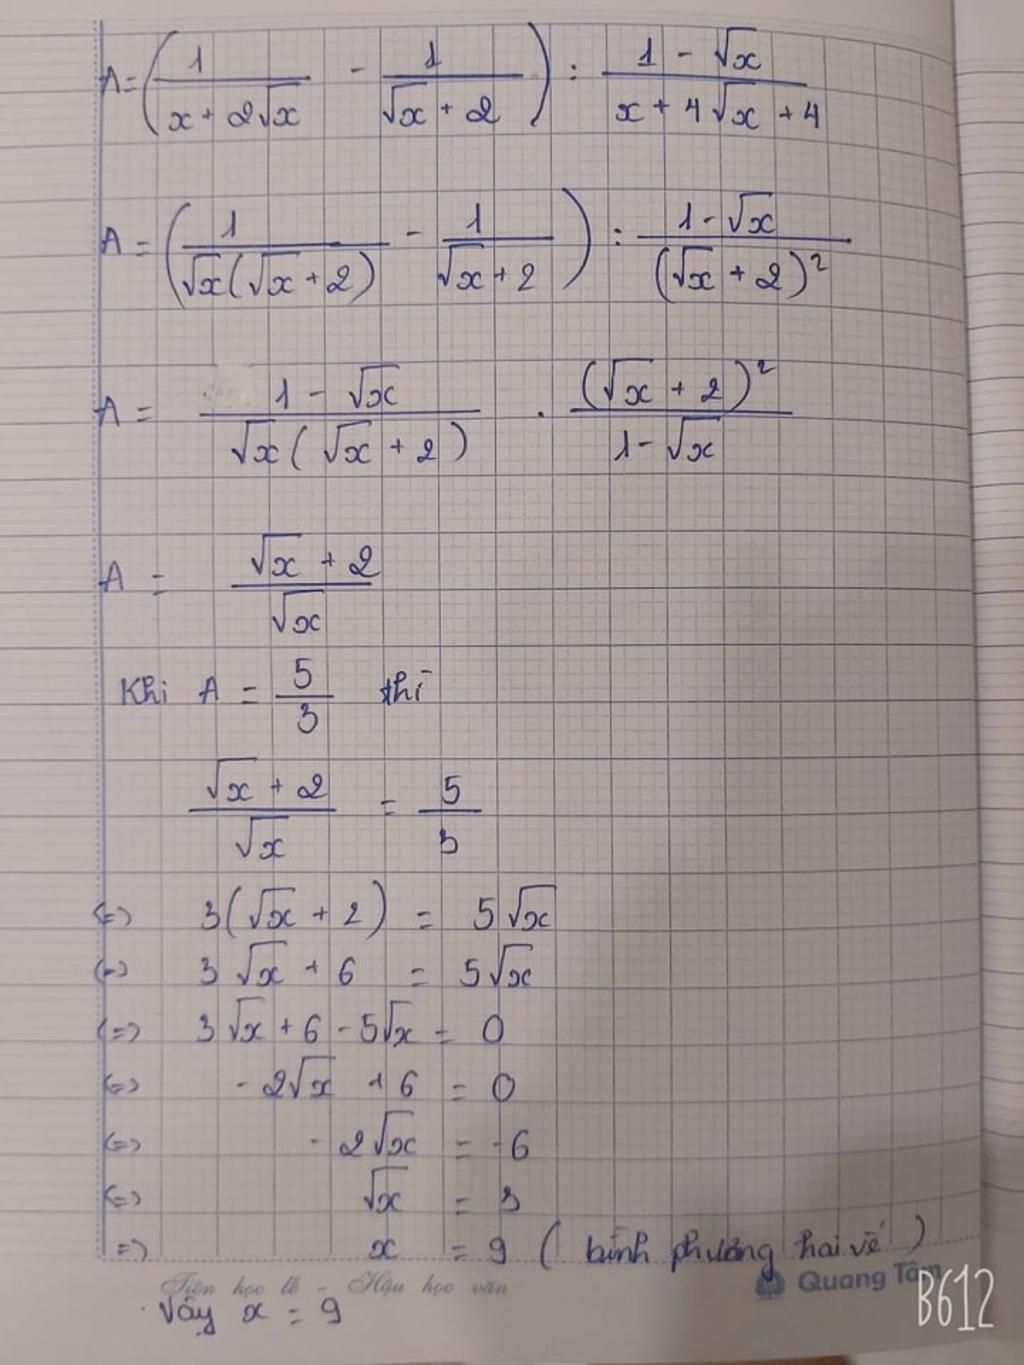 A = (1/(x + 2√x) - 1/(√x + 2)) : (1 - √x)/(x + 4√x + 4)
A = (1/(√x(√x + 2)) - 1/(√x + 2)) : (1 - √x)/(√x + 2)²
A = (1 - √x)/(√x(√x + 2)) . (√x + 2)²/(1 - √x)
A = (√x + 2)/√x
Khi A = 5/3 thì
(√x + 2)/√x = 5/3
(=) 3(√x + 2) = 5√x
(=) 3√x + 6 = 5√x
(=) 3√x + 6 - 5√x = 0
(=) -2√x + 6 = 0
(=) -2√x = -6
(=) √x = 3
=) x = 9 (bình phương hai vế)
Tiên học lễ - Hậu học văn
Quang Tâm
Vậy x = 9
B612